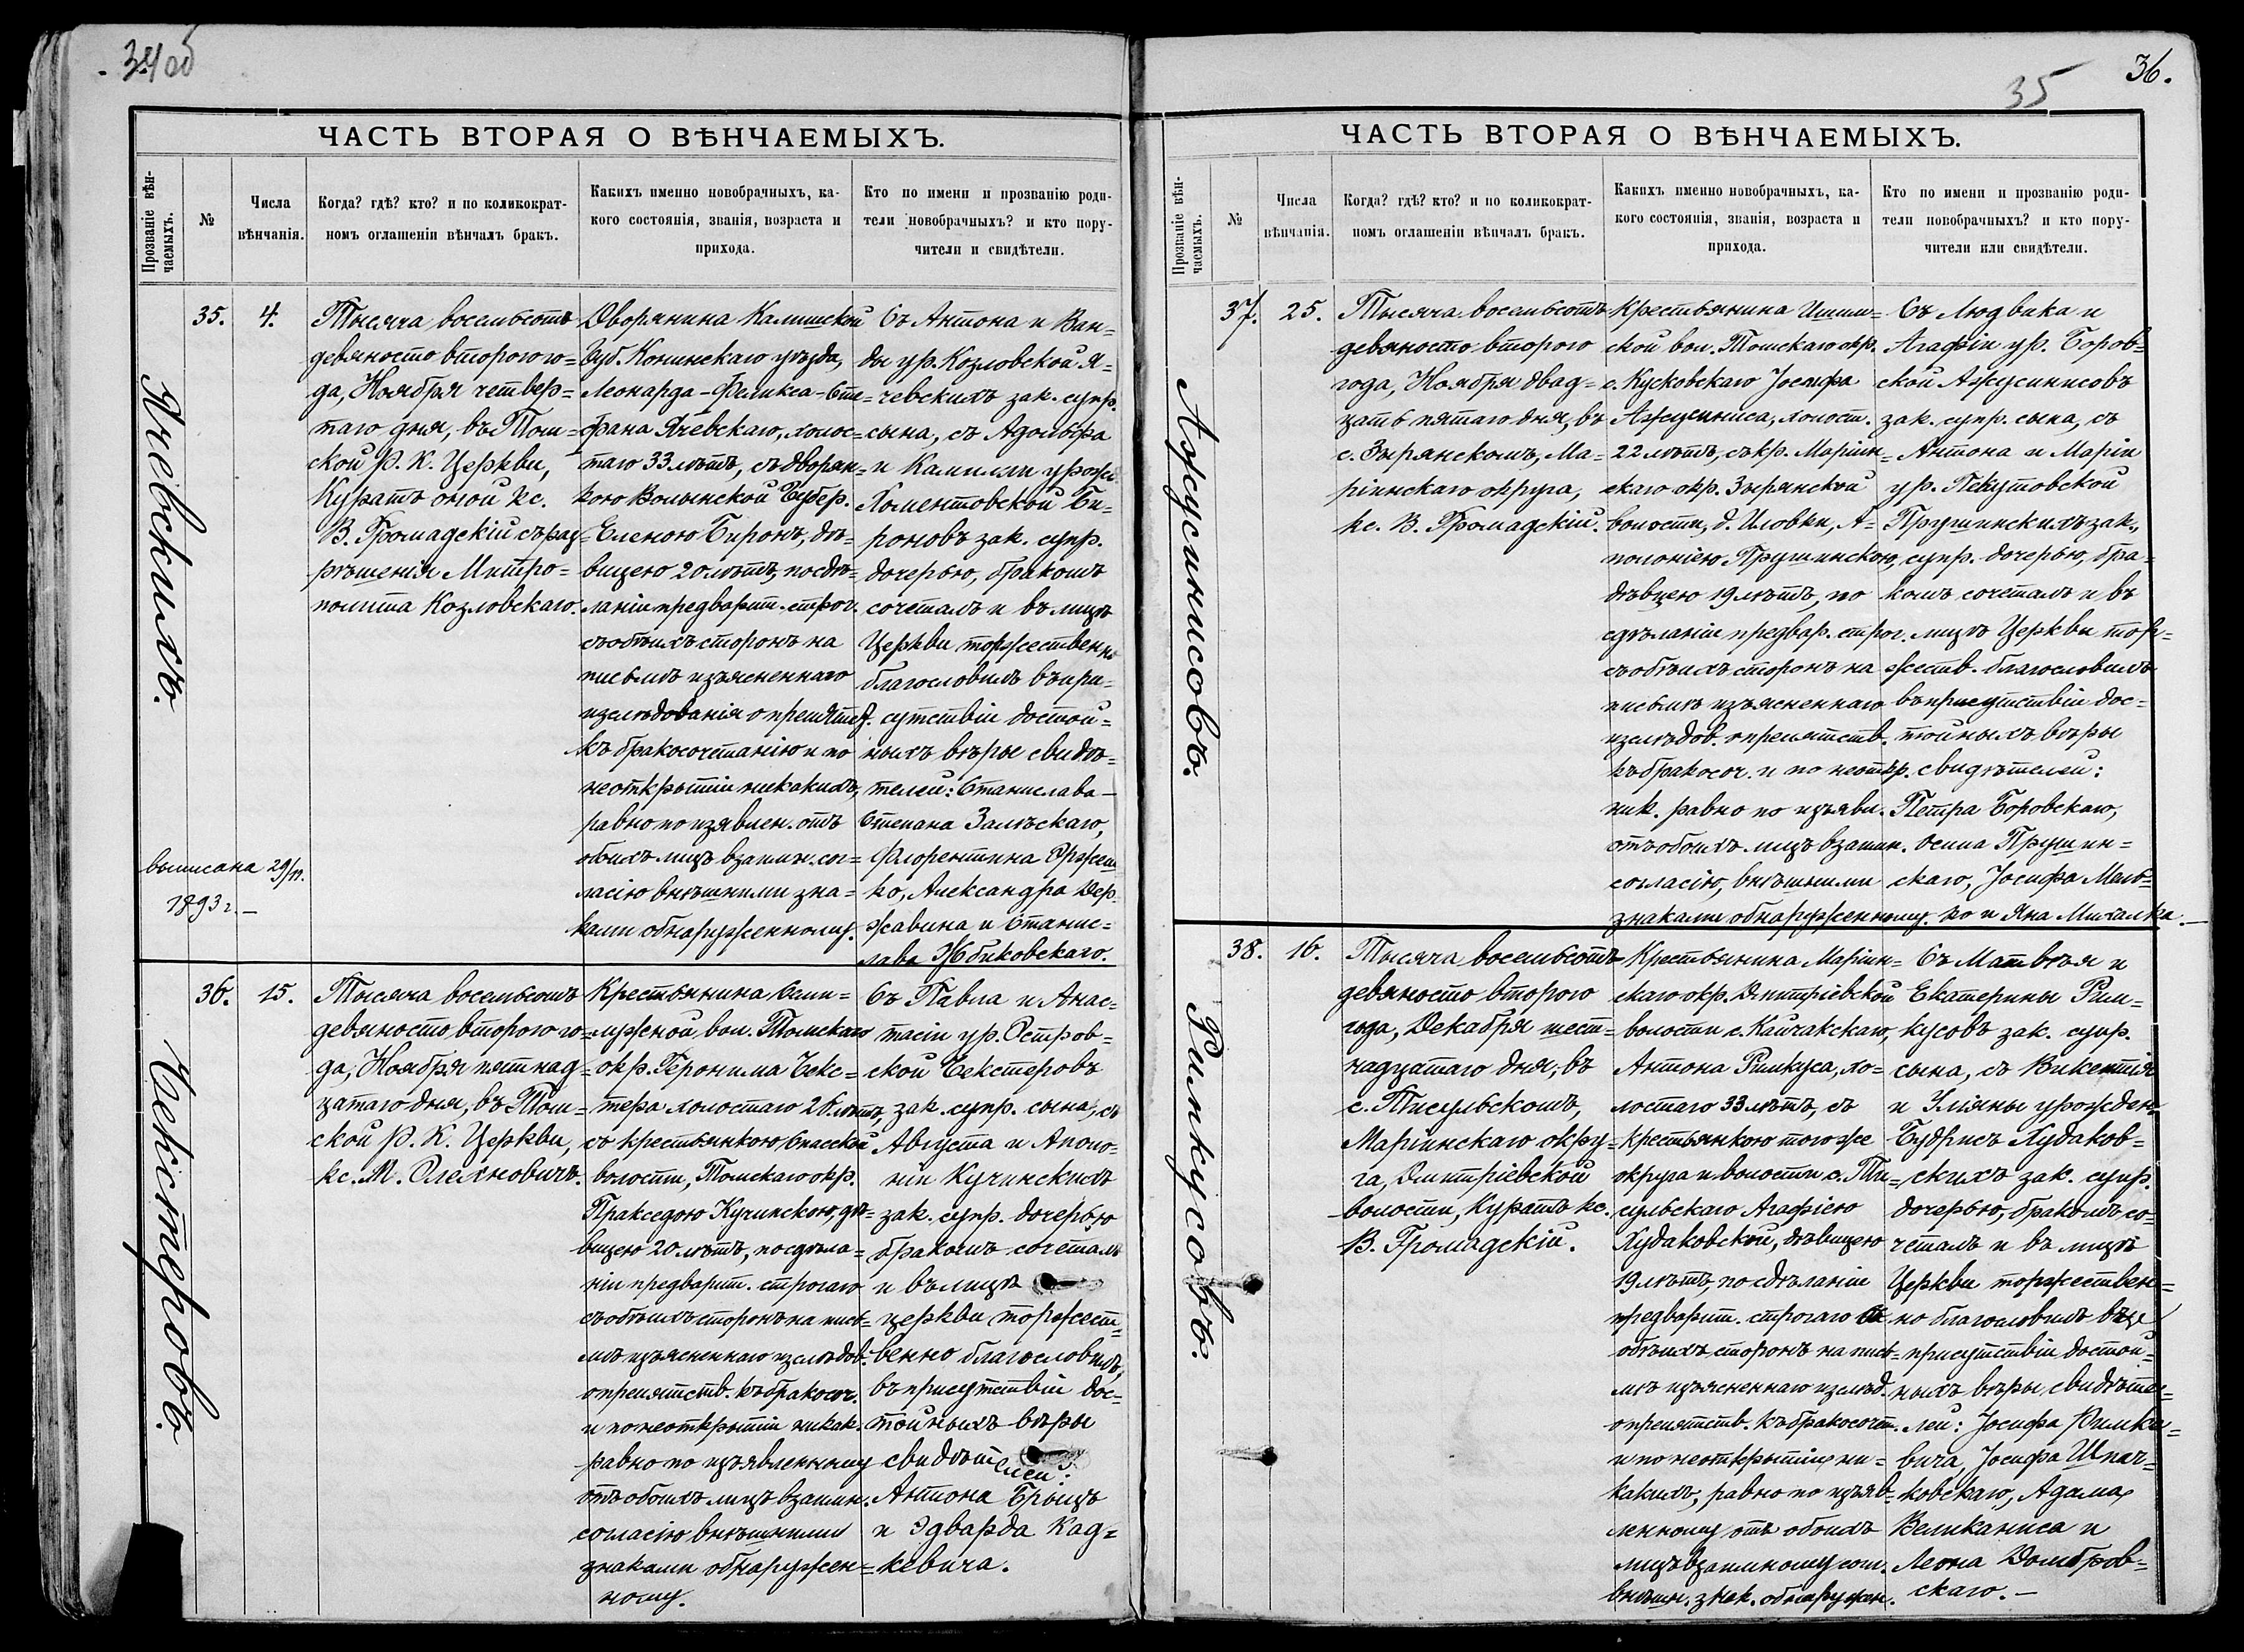 34об
ЧАСТЬ ВТОРАЯ О ВѢНЧАЕМЫХЪ.
Прозваніе вѣн-
чаемыхъ.
№
Числа
вѣнчанія.
Когда? гдѣ? кто? и по коликократ-
номъ оглашеніи вѣнчалъ бракъ.
Какихъ именно новобрачныхъ, ка-
кого состоянія, званія, возраста и
прихода.
Кто по имени и прозванію роди-
тели новобрачныхъ? и кто пору-
чители и свидѣтели.
Ячевскихъ.
выписана 29/11.
1893 г.—
35.
4.
Тысяча восемьсотъ
девяносто второго го=
да, Ноября четвер=
таго дня, въ Том=
ской Р. К. Церкви,
Куратъ оной кс.
В. Громадскій съ раз=
рѣшенія Митро=
полита Козловскаго.
Дворянина Калишской
Губ. Конинскаго уѣзда,
Леонарда-Феликса-Сте=
фана Ячевскаго, холос=
таго 33 лѣтъ, съ дворян=
кою Волынской Губер.
Еленою Биронъ, дѣ=
вицею 20 лѣтъ, по сдѣ=
ланіи предварит. строг.
съ обѣихъ сторонъ на
письмѣ изъясненнаго
изслѣдованія о препятств.
къ бракосочетанію и по
неоткрытіи никакихъ,
равно по изявлен. отъ
обоихъ лицъ взаимн. сог=
ласію внѣшними зна=
ками обнаруженному.
Съ Антона и Ван=
ды ур. Козловской Я=
чевскихъ зак. супр.
сына, съ Адольфа
и Камилли урож.
Хоментовской Би=
роновъ зак. супр.
дочерью, бракомъ
сочеталъ и въ лицѣ
Церкви торжественно
благословилъ въ при=
сутствіи достой=
ныхъ вѣры свидѣ=
телей: Станислава—
Степана Залѣскаго,
Флорентина Оржеш
ко, Александра Дер
жавина и Станис=
лава Жбиковскаго.
Чекстеровъ.
36.
15.
Тысяча восемьсотъ
девяносто второго го=
да, Ноября пятнад=
цатаго дня, въ Том=
ской Р. К. Церкви,
кс. М. Олехновичъ.
Крестьянина Семи=
лужной вол. Томскаго
окр. Геронима Чекс=
тера холостаго 26 лѣтъ,
съ крестьянкою Спасской
волости, Томскаго окр.
Пракседою Кучинскою, дѣ=
вицею 20 лѣтъ, по сдѣла=
ніи предварит. строгаго
съ обѣихъ сторонъ на пись=
мѣ изъясненнаго изслѣдов.
о препятств. къ бракосоч.
и по неоткрытіи никак.
равно по изъявленному
отъ обоихъ лицъ взаимн.
согласію внѣшними
знаками обнаружен=
ному.
Съ Павла и Анас=
тасіи ур. Остров=
ской Чекстеровъ
зак. супр. сына, съ
Августа и Аполо=
ніи Кучинскихъ
зак. супр. дочерью
бракомъ сочеталъ
и въ лицѣ
церкви торжест=
венно благословилъ,
въ присутствіи дос=
тойныхъ вѣры
свидѣтелей:
Антона Брыцъ
и Эдварда Кад=
кевича.
35
36.
ЧАСТЬ ВТОРАЯ О ВѢНЧАЕМЫХЪ.
Прозваніе вѣн-
чаемыхъ.
№
Числа
вѣнчанія.
Когда? гдѣ? кто? и по коликократ-
номъ оглашеніи вѣнчалъ бракъ.
Какихъ именно новобрачныхъ, ка-
кого состоянія, званія, возраста и
прихода.
Кто по имени и прозванію роди-
тели новобрачныхъ? и кто пору-
чители или свидѣтели.
Ажусинисовъ.
37.
25.
Тысяча восемьсотъ
девяносто второго
года, Ноября двад=
цать пятаго дня, въ
с. Зырянскомъ, Ма=
ріинскаго округа,
кс. В. Громадскій.
Крестьянина Ишим=
ской вол. Томскаго окр.
с. Кусковскаго Іосифа
Ажусиниса, холост.
22 лѣтъ, съ кр. Маріин=
скаго окр. Зырянской
волости, д. Иловки, А=
полоніею Прушинскою,
дѣвцею 19 лѣтъ, по
сдѣланіи предвар. строг.
съ обѣихъ сторонъ на
письмѣ изъясненнаго
изслѣдов. о препятств.
къ бракосоч. и по неоткр.
ник. равно по изъяви.
отъ обоихъ лицъ взаимн.
согласію, внѣшними
знаками обнаруженному.
Съ Людвика и
Агафіи ур. Боров=
ской Ажусинисовъ
зак. супр. сына, съ
Антона и Маріи
ур. Пекутовской
Прушинскихъ зак.
супр. дочерью, бра=
комъ сочеталъ и въ
лицѣ Церкви тор=
жеств. благословилъ
въ присутствіи дос=
тойныхъ вѣры
свидѣтелей:
Петра Боровскаго,
Осипа Прушин=
скаго, Іосифа Маль=
ко и Яна Михалка.—
Римкусовъ.
38.
16.
Тысяча восемьсотъ
девяносто второго
года, Декабря шест=
надцатаго дня, въ
с. Тисульскомъ,
Маріинскаго окру=
га, Дмитріевской
волости, Куратъ кс.
В. Громадскій.
Крестьянина Маріин=
скаго окр. Дмитріевской
волости с. Кайчакскаго,
Антона Римкуса, хо=
лостаго 33 лѣтъ, съ
крестьянкою того же
округа и волости с. Ти=
сульскаго Агафіею
Худаковской, дѣвицею
19 лѣтъ, по сдѣланіи
предварит. строгаго съ
обѣихъ сторонъ на пись=
мѣ изъясненнаго изслѣд.
о препятств. къ бракосочет.
и по неоткрытіи ни=
какихъ, равно по изъяв=
ленному отъ обоихъ
лицъ взаимному согл.
внѣшн. знак. обнаружен.
Съ Матвѣя и
Екатерины Рим=
кусовъ зак. супр.
сына, съ Викентія
и Уліяны урожден.
Будрисъ Худаков=
скихъ зак. супр.
дочерью, бракомъ со=
четалъ и въ лицѣ
Церкви торжествен=
но благословилъ въ
присутствіи достой=
ныхъ вѣры, свидѣте=
лей: Іосифа Римке=
вича, Іосифа Шпач=
ковскаго, Адама
Великаниса и
Леона Домбров=
скаго.—